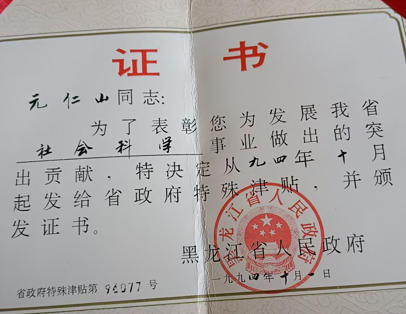 证书
元仁山同志：
为了表彰您为发展我省
社会科学事业做出的突
出贡献，特决定从九四年十月
起发给省政府特殊津贴，并颁
发证书。
黑龙江省人民政府
一九九四年十月一日
省政府特殊津贴第 94077 号
黑龙江省人民政府